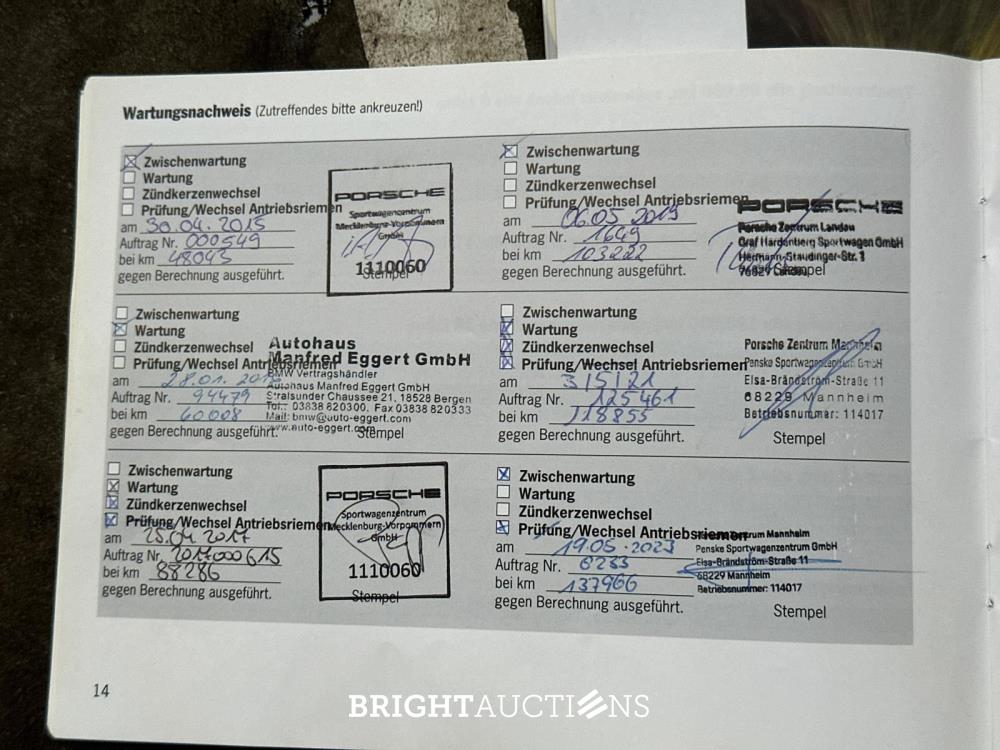 Wartungsnachweis (Zutreffendes bitte ankreuzen!)
Zwischenwartung
Wartung
Zündkerzenwechsel
Prüfung/Wechsel Antriebsriemen
am 30.04.2015
Auftrag Nr. 000549
bei km 48043
gegen Berechnung ausgeführt.
PORSCHE
Sportwagenzentrum
Mecklenburg-Vorpommern
GmbH
1110060
Stempel
Zwischenwartung
Wartung
Zündkerzenwechsel
Prüfung/Wechsel Antriebsriemen
am 06.05.2019
Auftrag Nr. 1649
bei km 103222
gegen Berechnung ausgeführt.
PORSCHE
Porsche Zentrum Landau
Graf Hardenberg Sportwagen GmbH
Hermann-Staudinger-Str. 1
76829 Landau
Stempel
Zwischenwartung
Wartung
Zündkerzenwechsel
Prüfung/Wechsel Antriebsriemen
am 28.01.
Auftrag Nr. 94479
bei km 60008
gegen Berechnung ausgeführt.
Autohaus
Manfred Eggert GmbH
BMW Vertragshändler
Autohaus Manfred Eggert GmbH
Stralsunder Chaussee 21, 18528 Bergen
Tel.: 03838 820300, Fax 03838 820333
Mail: bmw@auto-eggert.com
www.auto-eggert.com
Stempel
Zwischenwartung
Wartung
Zündkerzenwechsel
Prüfung/Wechsel Antriebsriemen
am 3/5/21
Auftrag Nr. 125461
bei km 118855
gegen Berechnung ausgeführt.
Porsche Zentrum Mannheim
Penske Sportwagenzentrum GmbH
Elsa-Brändström-Straße 11
68229 Mannheim
Betriebsnummer: 114017
Stempel
Zwischenwartung
Wartung
Zündkerzenwechsel
Prüfung/Wechsel Antriebsriemen
am 25.04.2017
Auftrag Nr. 2017000615
bei km 88286
gegen Berechnung ausgeführt.
PORSCHE
Sportwagenzentrum
Mecklenburg-Vorpommern
GmbH
1110060
Stempel
Zwischenwartung
Wartung
Zündkerzenwechsel
Prüfung/Wechsel Antriebsriemen
am 19.05.2023
Auftrag Nr. 6233
bei km 137966
gegen Berechnung ausgeführt.
Zentrum Mannheim
Penske Sportwagenzentrum GmbH
Elsa-Brändström-Straße 11
68229 Mannheim
Betriebsnummer: 114017
Stempel
14
BRIGHTAUCTIONS